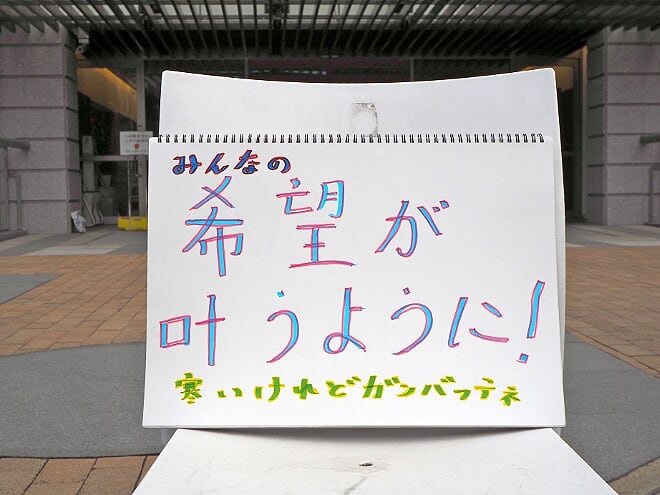 みんなの
希望が
叶うように!
寒いけれどガンバッテネ